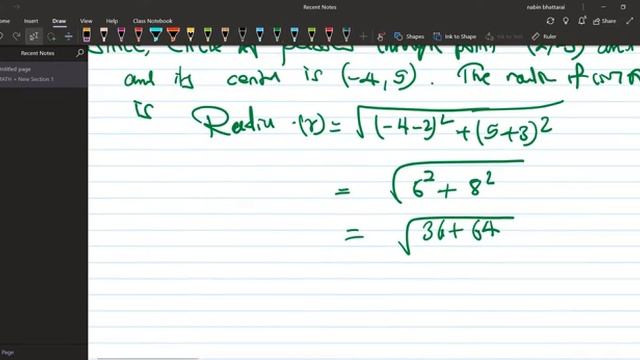 Recent Notes
nabin bhattarai
File Home Insert Draw View Help Class Notebook
Shapes Ink to Shape Ink to Math Ruler
Recent Notes
Untitled page
MATH » New Section 1
Since, circle passes through point
and its center is (-4, 5). The radius of
is Radiu (r) = √(-4-2)² + (5+3)²
= √6² + 8²
= √36 + 64
Page